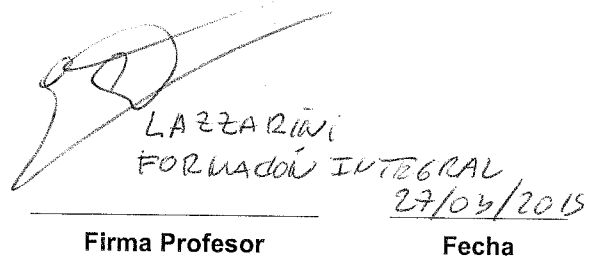 LAZZARINI
FORMACIÓN INTEGRAL
27/03/2015
Firma Profesor
Fecha